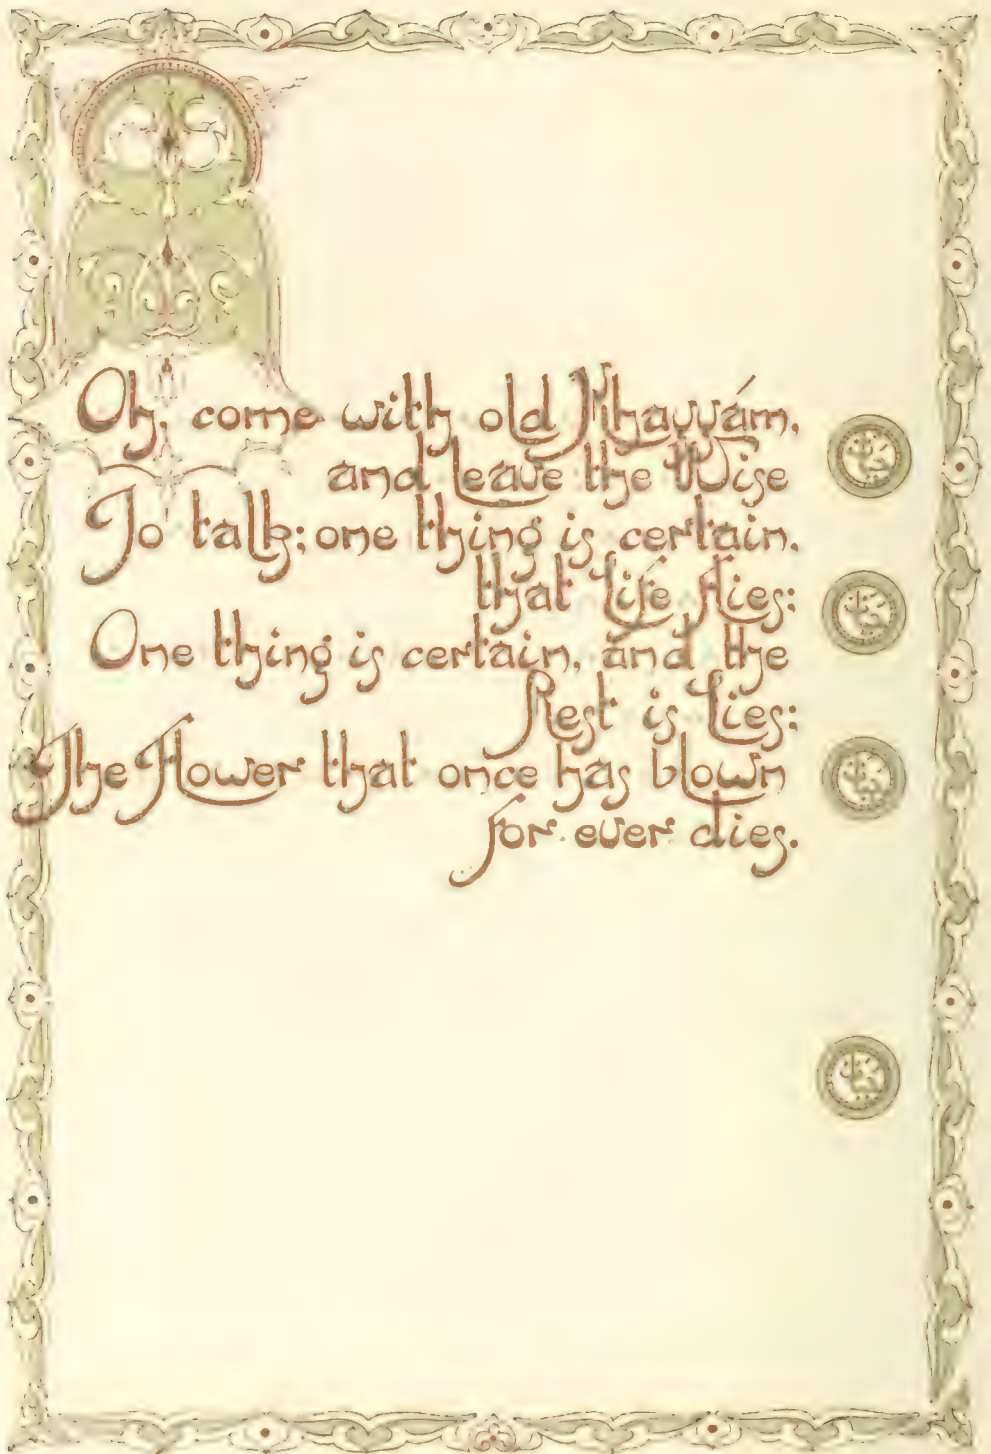 Oh, come with old Khayyám,
and leave the Wise
To talk; one thing is certain,
that Life flies:
One thing is certain, and the
Rest is Lies;
The Flower that once has blown
for ever dies.